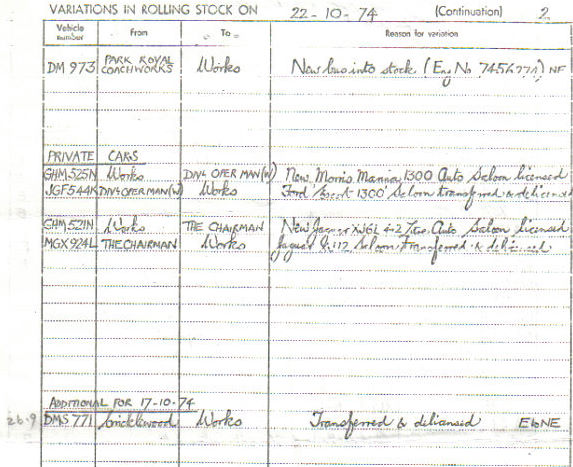 VARIATIONS IN ROLLING STOCK ON 22-10-74 (Continuation) 2
Vehicle number From To Reason for variation
DM 973 PARK ROYAL COACHWORKS Works New bus into stock (Eng No 7456774) NF
PRIVATE CARS
GHM 525N Works DIVL OPER MAN(W) New Morris Marina 1300 Auto Saloon licensed
JGF 544K DIVL OPER MAN(W) Works Ford Escort 1300 Saloon transferred & delicensed
GHM 521N Works THE CHAIRMAN New Jaguar XJ6L 4.2 Auto Saloon licensed
MGX 924L THE CHAIRMAN Works Jaguar Saloon Transferred & delicensed
ADDITIONAL FOR 17-10-74
26.9 DMS 771 Cricklewood Works Transferred & delicensed E6NE